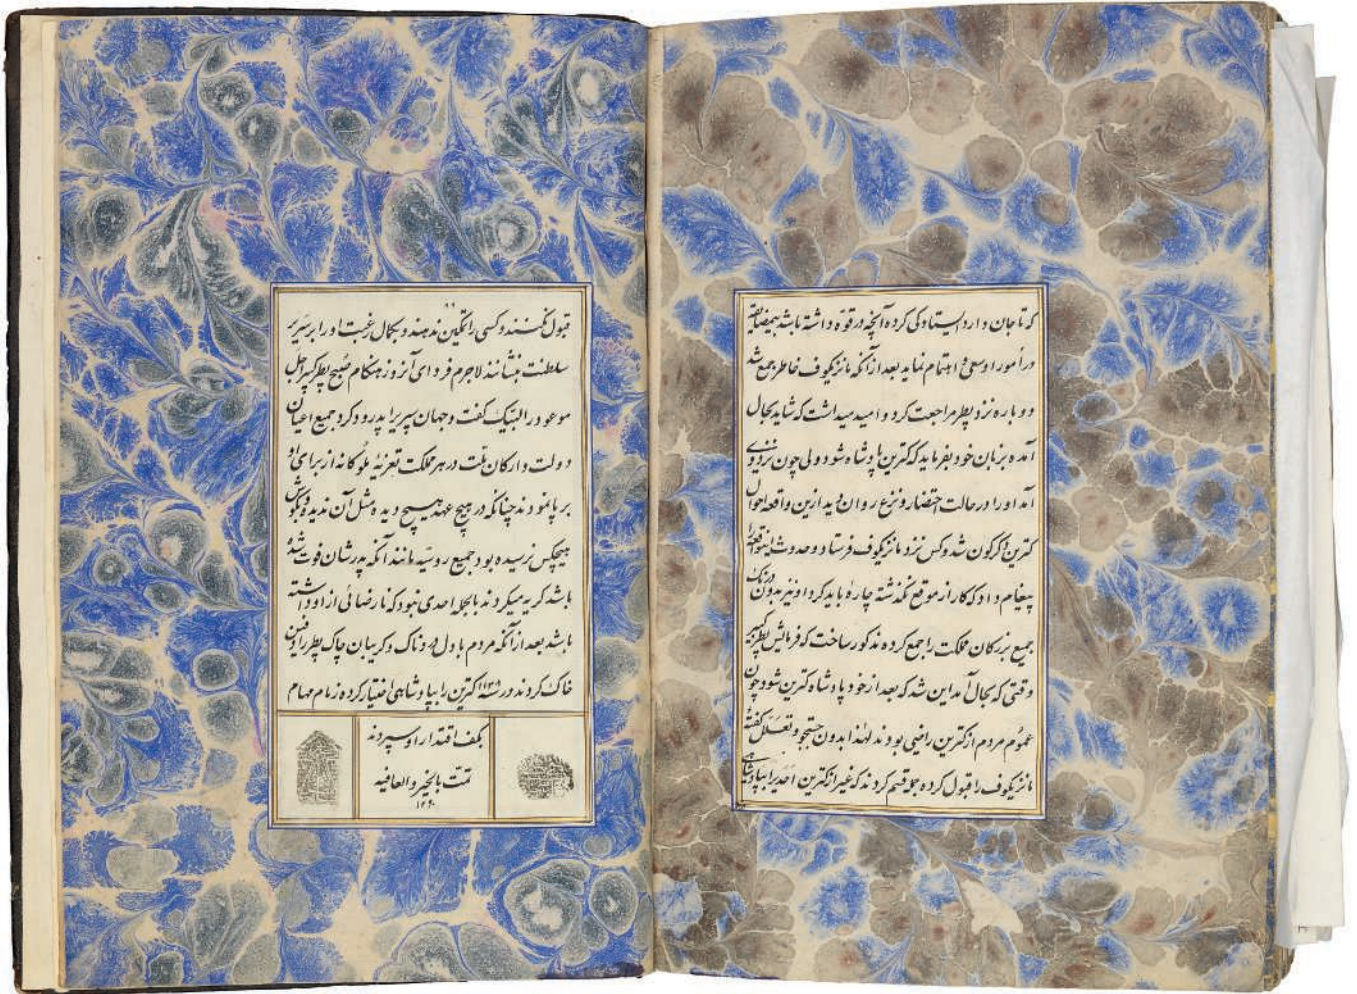 که تا جان دارد ایستادگی کرده آنچه در قوّه داشته باشد بیمضایقه
در امور او سعی و اهتمام نماید بعد از آنکه مانزیکوف خاطر جمع شد
دوباره نزد پطر مراجعت کرد و امید میداشت که شاید بحال
آمده بزبان خود بفرماید که کترین پادشاه شود ولی چون نزد وی
آمد او را در حالت احتضار و نزع روان دید ازین واقعه احوال
کترین دگرگون شد و کس نزد مانزیکوف فرستاد و حدوث اینواقعه را
پیغام داد که کار از موقع نگذشته چارهٔ باید کرد او نیز بدون درنگ
جمیع بزرکان مملکت را جمع کرده مذکور ساخت که فرمایش پطر کبیر
وقتی که بحال آمد این شد که بعد از خود پادشاه کترین شود چون
عموم مردم از کترین راضی بودند لهذا بدون جستجو و تعلل گفتهٔ
مانزیکوف را قبول کرده قسم کردند که غیر از کترین احدیرا بپادشاهی
قبول نکنند و کسی را تمکین ندهند و بکمال رغبت او را بر سریر
سلطنت بنشانند لاجرم فردای آنروز هنگام صبح پطر کبیر اجل
موعود را لبّیک گفت و جهان سپریرا پدرود کرد جمیع اعیان
دولت و ارکان ملّت در هر مملکت تعزیهٔ ملوکانه از برای او
بر پا نمودند چنانکه در هیچ عهد هیچ دیده مثل آن ندیده و بگوش
هیچکس نرسیده بود جمیع روسیّه مانند آنکه پدرشان فوت شده
باشد کریه میکردند بالجمله احدی نبود که نارضائی از او داشته
باشد بعد از آنکه مردم با دل دردناک و کریبان چاک پطر را دفن
خاک کردند در سنه ۱۱۳۸ کترین را بپادشاهی اختیار کرده زمام مهام
بکف اقتدار او سپردند
تمّت بالخیر و العافیه
۱۲۶۰